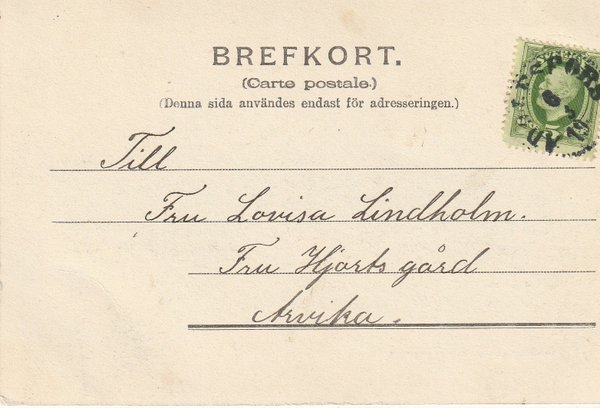 BREFKORT.
(Carte postale.)
(Denna sida användes endast för adresseringen.)
Till
Fru Lovisa Lindholm.
Fru Hjorts gård
Arvika.